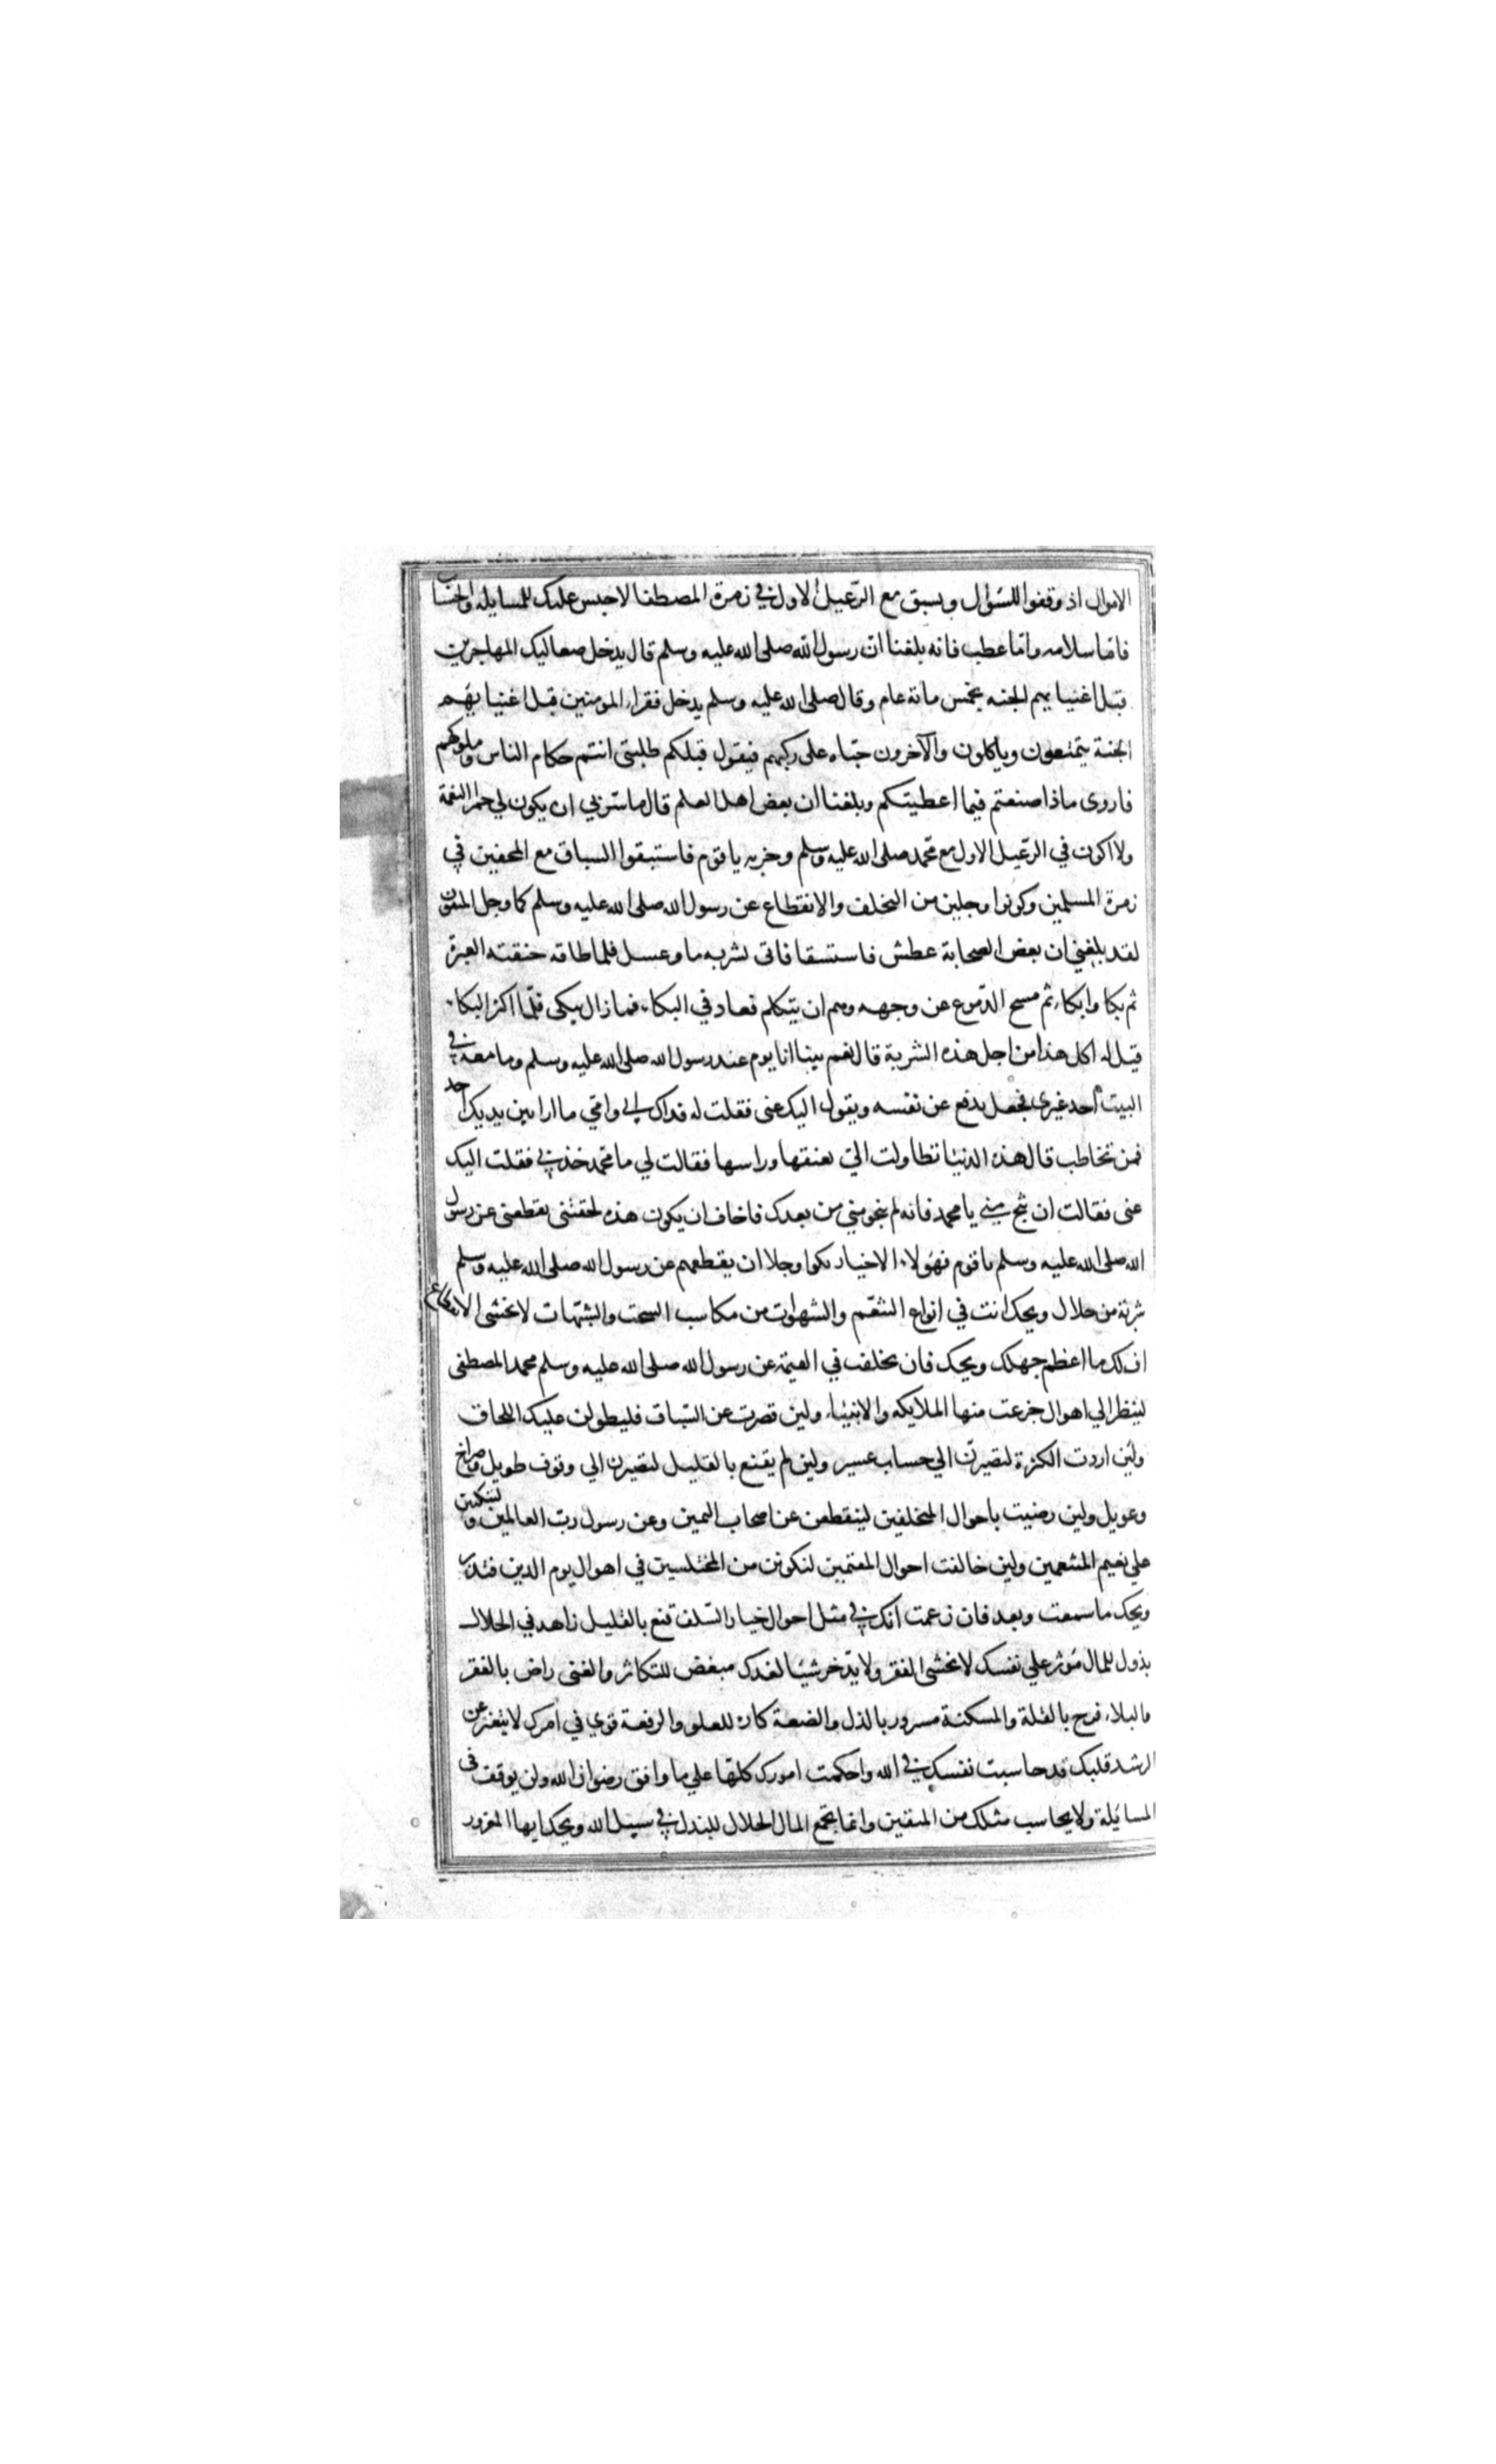 الاموال اذ وقفوا للسؤال وبسبق مع الرعيل الاول في زمرة المصطفا لا حبس عليك للمسايله والحساب
فاما سلامه واما عطب فانه بلغنا ان رسول الله صلى الله عليه وسلم قال يدخل صعاليك المهاجرين
قبل اغنيايهم الجنه بخمس مائة عام وقال صلى الله عليه وسلم يدخل فقراء المومنين قبل اغنيايهم
الجنة يتمتعون وياكلون والآخرون جثاه على ركبهم فيقول قبلكم طلبتى انتم حكام الناس وملوكهم
فاروى ماذا صنعتم فيما اعطيتكم وبلغنا ان بعض اهل العلم قال ما سرني ان يكون لي حمر النعمة
ولا اكون في الرعيل الاول مع محمد صلى الله عليه وسلم وحزبه يا قوم فاستبقوا السباق مع المخفين في
زمرة المسلمين وكونوا وجلين من التخلف والانقطاع عن رسول الله صلى الله عليه وسلم كما وجل المتقون
لقد بلغني ان بعض الصحابة عطش فاستسقا فاتى بشربه ما وعسل فلما طاقه خنقته العبرة
ثم بكا وابكاء ثم مسح الدموع عن وجهه وهم ان يتكلم فعاد في البكاء فما زال يبكى فلما اكثر البكاء
قيل له اكل هذا من اجل هذه الشربة قال نعم بينا انا يوم عند رسول الله صلى الله عليه وسلم وما معه في
البيت احد غيرى فجعل يدفع عن نفسه ويقول اليك عنى فقلت له فداك ابي وامي ما ارا بين يديك احد
فمن تخاطب قال هذه الدنيا تطاولت الي بعنقها وراسها فقالت لي يا محمد خذني فقلت اليك
عنى فقالت ان تنج مني يا محمد فانه لم ينجو مني من بعدك فاخاف ان يكون هذه لحقتني يقطعنى عن رسول
الله صلى الله عليه وسلم يا قوم فهولاء الاخيار بكوا وجلا ان يقطعهم عن رسول الله صلى الله عليه وسلم
شربة من حلال ويحك انت في انواع التنعم والشهوات من مكاسب السحت والشبهات لا تخشى الانقطاع
اف لك ما اعظم جهلك ويحك فان تخلفت في القيمة عن رسول الله صلى الله عليه وسلم محمد المصطفى
لينظر الي اهوال جزعت منها الملايكه والانبيناء ولين قصرت عن السباق فليطولن عليك اللحاق
ولين اردت الكثرة لتصيرن الي حساب عسير ولين لم يقنع بالقليل لتصيرن الي وقوف طويل وصراخ
وعويل ولين رضيت باحوال المتخلفين لينقطعن عن اصحاب اليمين وعن رسول رب العالمين ولتبكين
علي نعيم المتنعمين ولين خالفت احوال المتقين لتكونن من المحتبسين في اهوال يوم الدين فتدبر
ويحك ما سمعت وبعد فان زعمت انك في مثل احوال خيار السلف قنع بالقليل زاهد في الحلال
بذول للمال موثر علي نفسك لا تخشى الفقر ولا يدخر شيئا لغدك مبغض للتكاثر والغنى راض بالفقر
والبلاء فرح بالقلة والمسكنة مسرور بالذل والضعة كاره للعلو والرفعة قوي في امرك لا يتغير عن
الرشد قلبك قد حاسبت نفسك في الله واحكمت امورك كلها علي ما وافق رضوان الله ولن يوقف فى
المسايلة ولا يحاسب مثلك من المتقين وانما تجمع المال الحلال للبذل في سبيل الله ويحك ايها المغرور